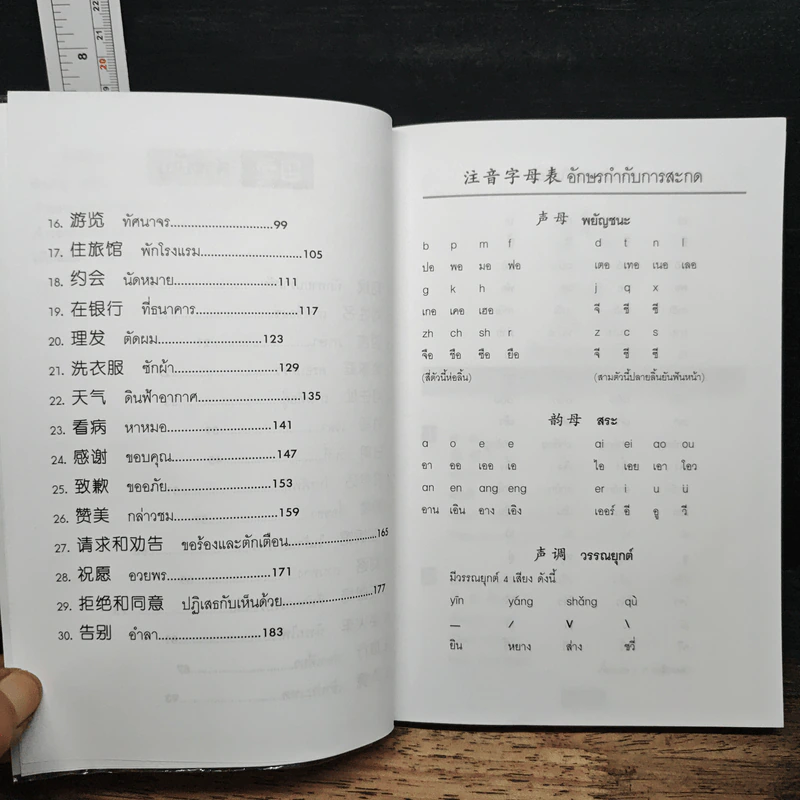 16. 游览 ทัศนาจร..............................99
17. 住旅馆 พักโรงแรม..............................105
18. 约会 นัดหมาย..............................111
19. 在银行 ที่ธนาคาร..............................117
20. 理发 ตัดผม..............................123
21. 洗衣服 ซักผ้า..............................129
22. 天气 ดินฟ้าอากาศ..............................135
23. 看病 หาหมอ..............................141
24. 感谢 ขอบคุณ..............................147
25. 致歉 ขออภัย..............................153
26. 赞美 กล่าวชม..............................159
27. 请求和劝告 ขอร้องและตักเตือน..............................165
28. 祝愿 อวยพร..............................171
29. 拒绝和同意 ปฏิเสธกับเห็นด้วย..............................177
30. 告别 อำลา..............................183
注音字母表 อักษรกำกับการสะกด
声母 พยัญชนะ
b p m f d t n l
ปอ พอ มอ ฟอ เตอ เทอ เนอ เลอ
g k h j q x
เกอ เคอ เฮอ จี ชี ซี
zh ch sh r z c s
จือ ชือ ซือ ยือ จี ชี ซี
(สี่ตัวนี้ห่อลิ้น) (สามตัวนี้ปลายลิ้นยันฟันหน้า)
韵母 สระ
a o e e ai ei ao ou
อา ออ เออ เอ ไอ เอย เอา โอว
an en ang eng er i u ü
อาน เอิน อาง เอิง เออร์ อี อู วี
声调 วรรณยุกต์
มีวรรณยุกต์ 4 เสียง ดังนี้
yīn yáng shǎng qù
— ˊ ˇ ˋ
ยิน หยาง ส่าง ชวี่
8
22
20
19